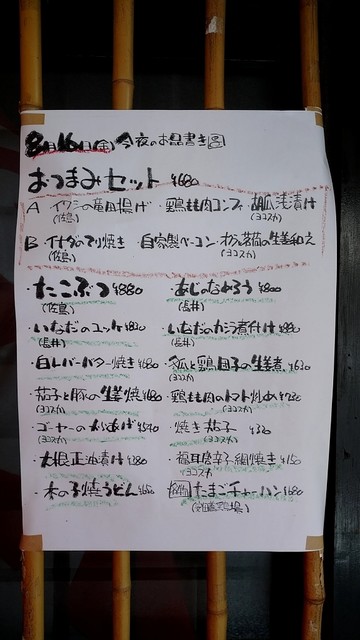 8月16日(金) 今夜のお品書き
おつまみセット ¥680
A イワシの竜田揚げ・鶏もも肉コンフィ・胡瓜浅漬け
(佐島) (ヨコスカ)
B イナダのてり焼き・自家製ベーコン・オクラ茗荷の生姜和え
(佐島) (ヨコスカ)
・たこぶつ ¥880 ・あじのなめろう ¥800
(佐島) (長井)
・いなだのユッケ ・いなだのカシラ煮付け
(長井) (長井)
・白レバーバター焼き ¥680 ・と鶏団子の生姜煮 ¥630
(ヨコスカ)
・茄子と豚の生姜焼 ・鶏もも肉のトマト炒め
(ヨコスカ) (ヨコスカ)
・ゴーヤーのかきあげ ・焼き茄子
(ヨコスカ) (ヨコスカ)
・大根正油漬け ・福耳唐辛子網焼き
(ヨコスカ)
・木の子焼うどん ・たまごチャーハン ¥680